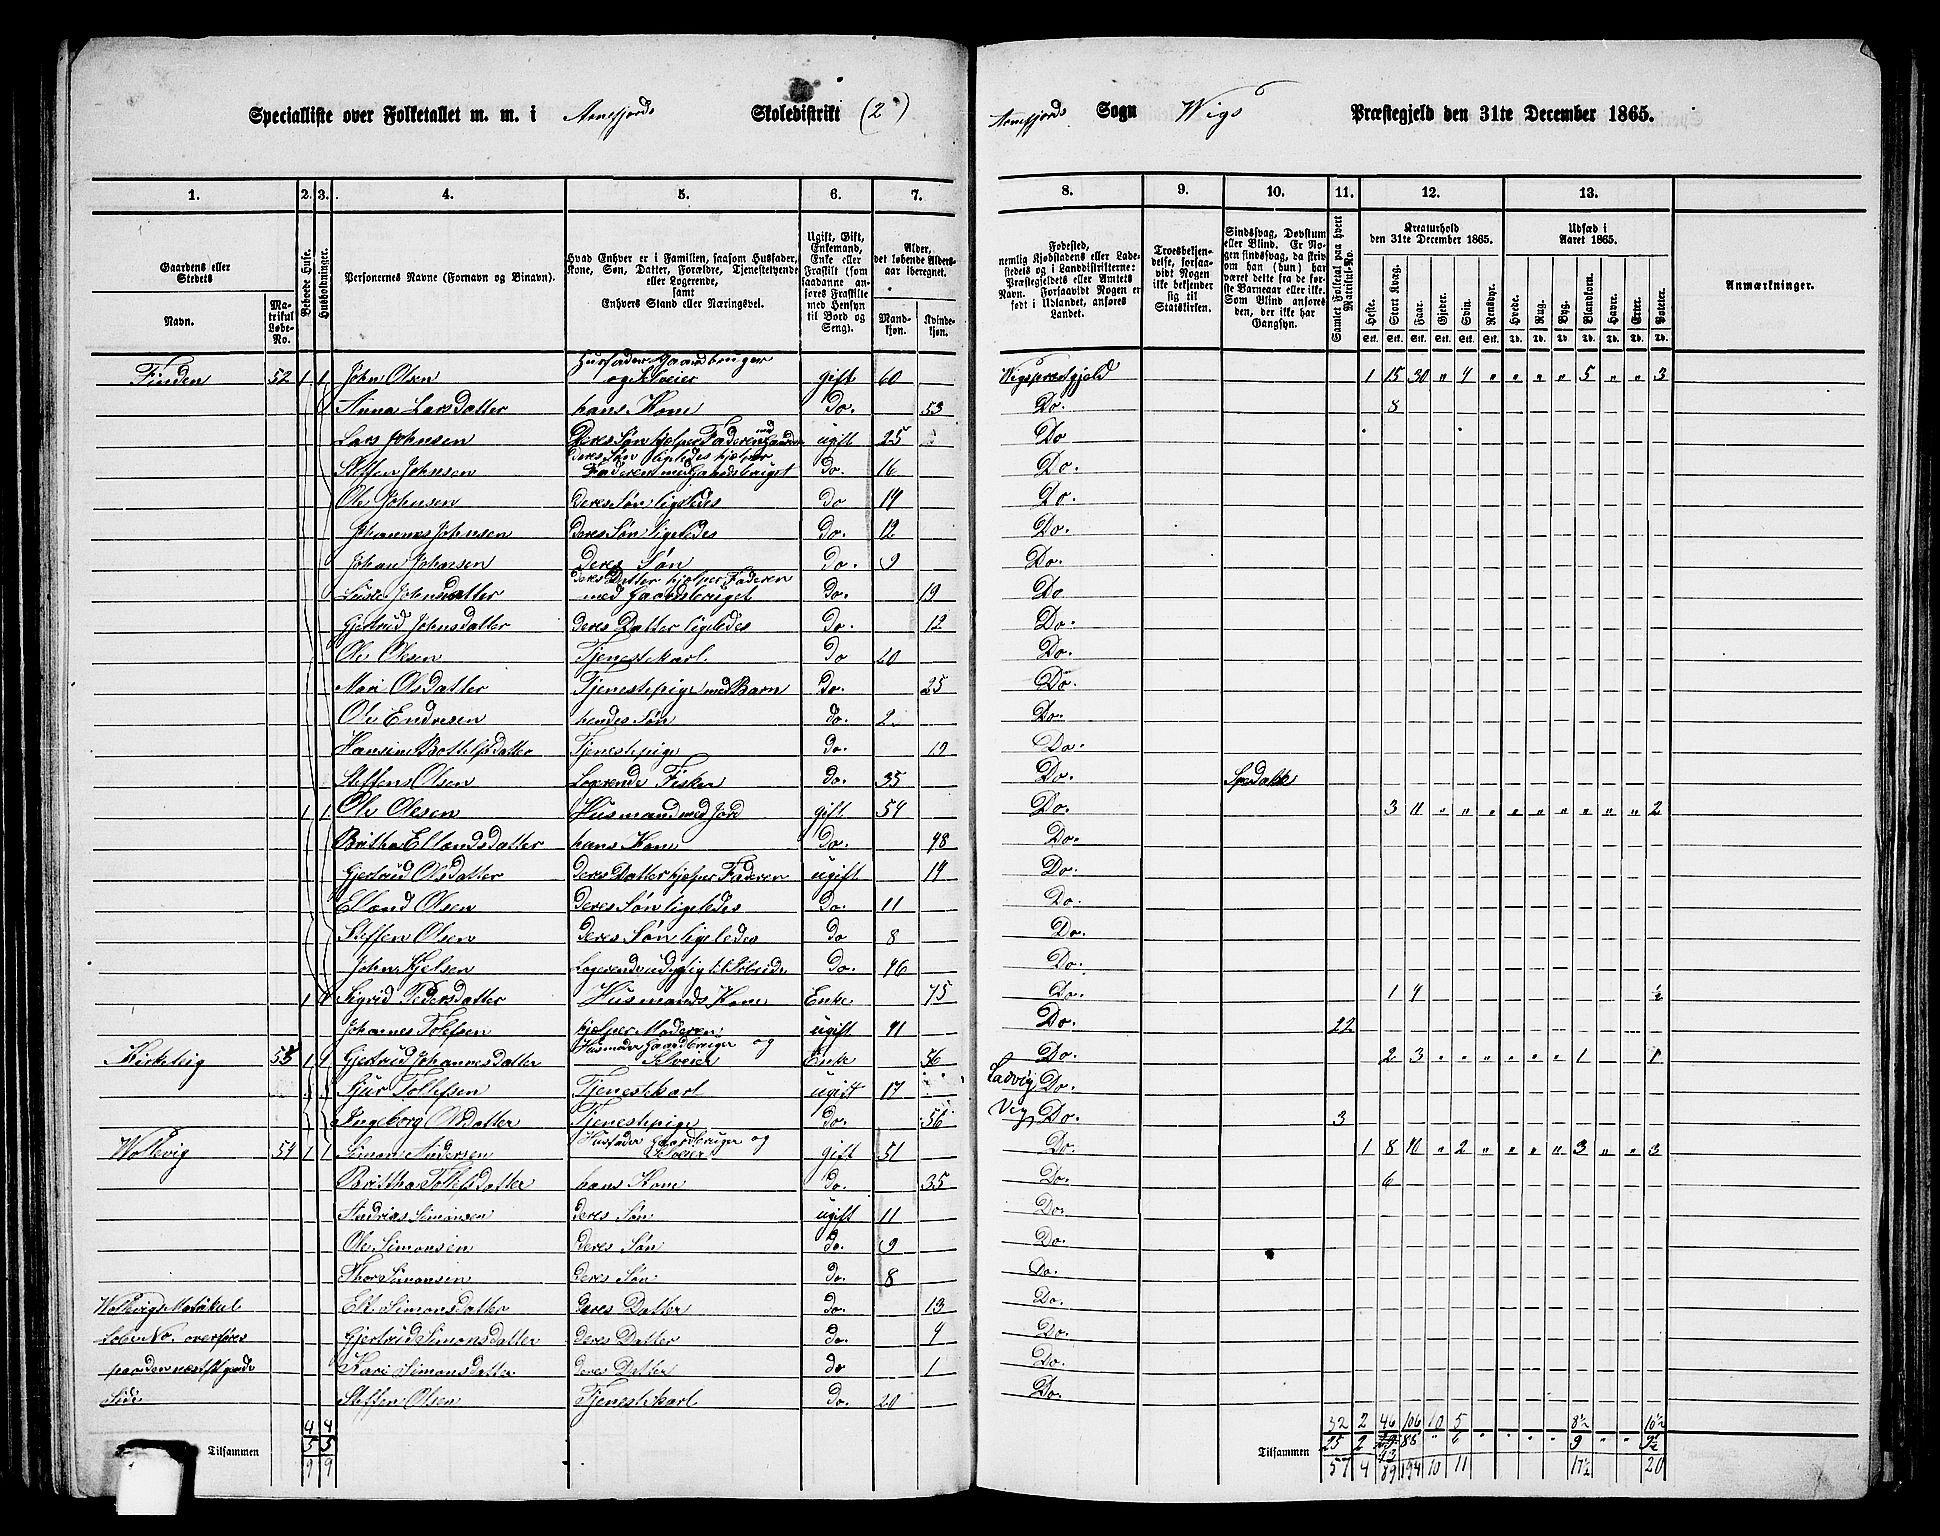 Specialliste over Folketallet m. m. i Arnefjords Skoledistrikt (2)
Arnefjords Sogn Wigs Præstegjeld den 31te December 1865.
1. 2. 3. 4. 5. 6. 7.
8. 9. 10. 11. 12. 13.
Gaardens eller Stedets
Navn.
Matrikul Løbe-No.
Beboede Huse.
Husholdninger.
Personernes Navne (Fornavn og Binavn).
Hvad Enhver er i Familien, saasom Husfader, Kone, Søn, Datter, Forældre, Tjenestetyende eller Logerende, samt Enhvers Stand eller Næringsvei.
Ugift, Gift, Enkemand, Enke eller Fraskilt (som saadanne anføres Fraskilte med Hensyn til Bord og Seng).
Alder, det løbende Aldersaar iberegnet.
Mandkjøn.
Kvindekjøn.
Fødested, nemlig Kjøbstadens eller Ladestedets og i Landdistrikterne: Præstegjeldets eller Amtets Navn. Forsaavidt Nogen er født i Udlandet, anføres Landet.
Troesbekjendelse, forsaavidt Nogen ikke bekjender sig til Statskirken.
Sindssvag, Døvstum eller Blind. Er Nogen sindssvag, da skriv om han (hun) har været dette fra de første Barneaar eller ikke. Som Blind anføres den, der ikke har Gangsyn.
Samlet Folketal paa hvert Matrikul-No.
Kreaturhold den 31te December 1865.
Heste. Stort Kvæg. Faar. Gjeder. Svin. Rensdyr.
Udsæd i Aaret 1865.
Hvede. Rug. Byg. Blandkorn. Havre. Erter. Poteter.
Anmærkninger.
Finden 52 1 1 John Olsen Husfader Gaardbruger og Selveier gift 60 Wigs præstgjeld 1 15 30 " 4 " " " " 5 " " 3
Anna Larsdatter hans Kone Do. 53 Do. 8
Lars Johnsen Deres Søn hjelper Faderen med Gaarden ugift 25 Do
Steffen Johnsen Deres Søn ligeledes hjelper Faderen med Gaardsbruget Do. 16 Do.
Ole Johnsen Deres Søn ligeledes Do 14 Do.
Johannes Johnsen Deres Søn ligeledes Do. 12 Do.
Johan Johnsen Deres Søn Do. 9 Do.
Johnsdatter deres Datter hjelper Faderen med Gaardsbruget Do. 19 Do
Gjertrud Johnsdatter deres Datter ligeledes Do. 12 Do.
Ole Olesen Tjenestekarl Do 20 Do.
Mari Olsdatter Tjenestepige med Barn Do. 25 Do.
Ole Endresen hendes Søn do. 2 Do.
Tjenestepige Do. 19 Do.
Steffen Olsen Logerende Fisker do. 35 Do. Spedalsk
1 1 Ole Olesen Husmand med Jord gift 54 Do. 3 11 " " " " " " " " " 2
Britha Ellandsdatter hans Kone Do. 48 Do.
Gjertrud Olsdatter deres Datter hjelper Faderen ugift 14 Do.
Elland Olsen Deres Søn ligeledes Do. 11 Do.
Steffen Olsen Deres Søn ligeledes Do 8 Do.
John Logerende udygtig til Arbeide Do. 46 Do.
1 1 Sigrid Pedersdatter Husmands Kone Enke 75 Do. 1 4 ½
Johannes Tolefsen hjelper Moderen ugift 41 Do. 22
Kirkeleig 53 1 1 Gjertrud Johannesdatter Husmoder Gaardbruger og Selveier Enke 56 Do. 2 3 " " " " " " 1 1
Sjur Tollefsen Tjenestekarl ugift 17 Ladvig Do.
Ingeborg Olsdatter Tjenestepige Do. 56 Vig Do. 3
Wollevig 54 1 1 Simon Andersen Husfader Gaardbruger og Selveier gift 51 Do. 1 8 16 " 2 " " " " 3 " " 3
Brittha Tollefsdatter hans Kone do. 35 Do. 6
Andrias Simonsen deres Søn ugift 11 Do.
Ole Simonsen deres Søn Do. 9 Do.
Thor Simonsen deres Søn do. 8 Do.
Wollevigs Matrikul Eli Simonsdatter deres Datter do. 13 Do.
Løbe No. overføres Gjertrud Simonsdatter deres Datter do. 4 Do.
paa den næstfølgende Kari Simonsdatter deres Datter do 1 Do.
Side Steffen Olsen Tjenestekarl Do. 20 Do.
4 4 32 2 46 106 10 5 8½ 10½
Tilsammen 5 5 Tilsammen 25 2 43 88 " 6 " " " " 9 " " 9½
9 9 57 4 89 194 10 11 17½ 20